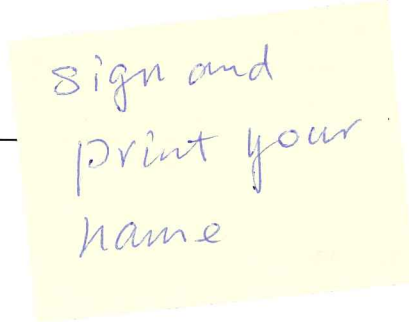 sign and
print your
name